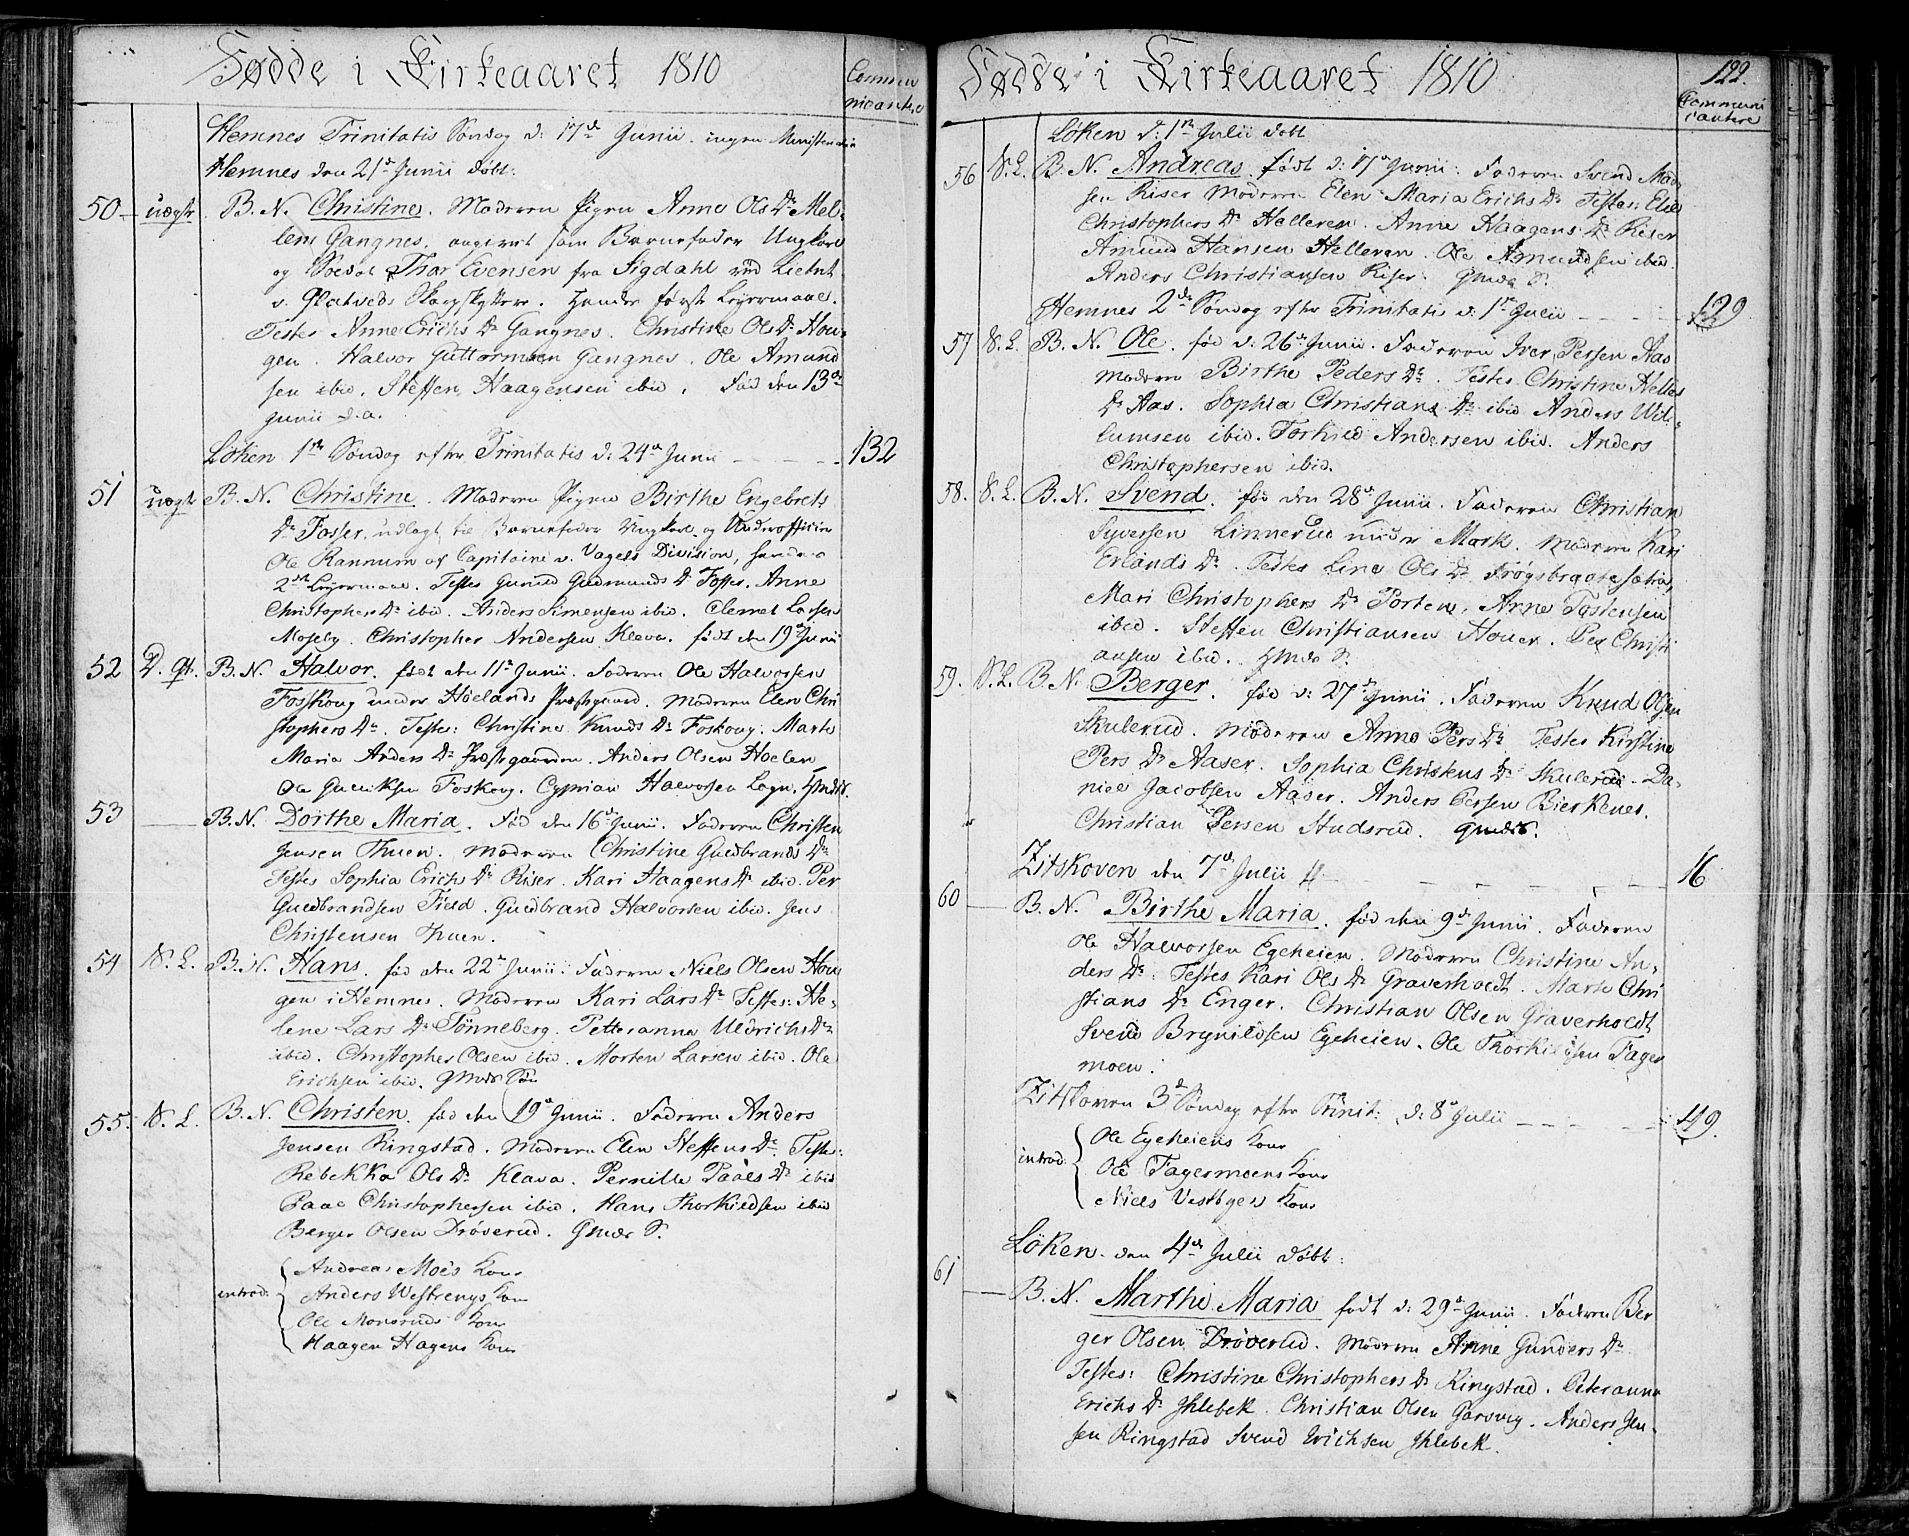 Fødde i Kirkeaaret 1810
Commu
nicantere
Hemnes Trinitatis Søndag d: 17de Junii. ingen Ministerialia
Hemnes den 21de Junii døbt:
50 uægte B. N. Christine. Moderen Pigen Anne Ols Dr Mel-
lem Gangnes. angivet som Barnefader Ungkarl
og Soldat Thor Evensen fra Sigdahl ved Lieutn
v. Skarpskyttere. Hendes første Leyermaal.
Testes Anne Erichs Dr Gangnes. Christine Ols Dr Hou-
gen. Halvor Guttormsen Gangnes. Ole Amund
sen ibid. Steffen Haagensen ibid. Fød den 13de
Junii d. a.
Løken 1ste Søndag efter Trinitatis d: 24de Junii 132
51 uægte B. N. Christine. Moderen Pigen Birthe Engebrets
Dr Fosser. udlagt til Barnefader Ungkarl og Underofficier
Ole Rannum af Capitaine v. Vagels Division, hendes
2det Leyermaal. Testes Gunild Gudmunds Dr Fosser. Anne
Christopher Dr ibid. Anders Simensen ibid. Clemet Larsen
Moseby. Christopher Andersen Klava. født den 19de Junii
52 D. gt. B. N. Halvor. født den 11te Junii. Faderen Ole Halvorsen
Foskoug under Hølands Præstegaard. Moderen Elen Chri
stophers Dr. Testes: Christine Knuds Dr Foskoug. Marte
Maria Anders Dr Præstegaarden. Anders Olsen Hoelen
Ole Foskoug. Cyprian Halvorsen Logn. Gmds S.
53 B. N. Dorthe Maria. Fød den 16de Junii. Faderen Christen
Jensen Thuen. Moderen Christine Guldbrands Dr
Testes Sophia Erichs Dr Riser. Kari Haagens Dr ibid. Per
Guldbrandsen Field. Guldbrand Halvorsen ibid. Jens
Christensen Thuen.
54 N. L. B. N. Hans. fød den 22de Junii. Faderen Niels Olsen Hou
gen i Hemnes. Moderen Kari Lars Dr Testes: He-
lene Lars Dr Tønneberg. Petterianna Uldrichs Dr
ibid. Christopher Olsen ibid. Morten Larsen ibid. Ole
Erichsen ibid. Gmds Søn
55. N. L. B. N. Christen. fød den 19de Junii. Faderen Anders
Jensen Ringstad. Moderen Elen Steffens Dr. Testes:
Rebekka Ols Dr Klava. Pernille Paals Dr ibid
Paal Christophersen ibid. Hans Thorkildsen ibid
Berger Olsen Drøverud. Gmds S.
introd: Andreas Moes Kone
Anders Westrengs Kone
Ole Monsruds Kone
Haagen Hagens Kone
Fødde i Kirkeaaret 1810
122.
Communi
cantere
Løken d: 1ste Julii døbt
56 N. L. B. N. Andreas. født d: 17de Junii. Faderen Svend Mad
sen Riser Moderen Elen Maria Erichs Dr Testes: Else
Christophers Dr Helleren. Anne Haagens Dr Riser
Amund Hansen Helleren. Ole Amundsen ibid.
Anders Christiansen Riser. Gmds S.
Hemnes 2den Søndag efter Trinitatis d: 1ste Julii 129
57 N. L. B. N. Ole. fød d: 26de Junii. Faderen Iver Persen Aas
Moderen Birthe Peders Dr. Testes Christine Helles
Dr Aas. Sophia Christians Dr ibid Anders Wil-
lumsen ibid. Torkild Andersen ibid. Anders
Christophersen ibid.
58. N. L. B. N. Svend. fød den 28de Junii. Faderen Christian
Syversen Linnerud under Mork. Moderen Kari
Erlands Dr. Testes Line Ols Dr
Mari Christophers Dr Porten. Arne Tostensen
ibid. Steffen Christiansen Houer. Per Christi
ansen ibid. Gmds S.
59. N. L. B. N. Berger. fød d: 27de Junii. Faderen Knud Olsen
Skulerud. Moderen Anne Pers Dr Testes Kirstine
Pers Dr Aaser. Sophia Christens Dr Skulerud. Da-
niel Jacobsen Aaser. Anders Persen Bierkenes.
Christian Persen Hudsrud. Gmds S.
Zitskoven den 7de Julii 16
60 B. N. Birthe Maria. fød den 9de Junii. Faderen
Ole Halvorsen Egeheien. Moderen Christine An-
ders Dr. Testes Kari Ols Dr Graverholdt. Marte Chri
stians Dr Enger. Christian Olsen Graverholdt
Svend Brynildsen Egeheien. Ole Thorkildsen Fager
moen.
Zitskoven 3de Søndag efter Trinit: d: 8de Julii 119.
introd: Ole Egeheiens Kone
Ole Fagermoens Kone
Niels Vestbyes Kone
Løken den 4de Julii døbt:
61 B. N. Marthe Maria født d: 29de Junii. Faderen Ber
ger Olsen Drøverud. Moderen Anne Gunders Dr
Testes: Christine Christophers Dr Ringstad. Peteranna
Erichs Dr Ihlebek. Christian Olsen Garsvig. Anders Jen-
sen Ringstad Svend Erichsen Ihlebek.